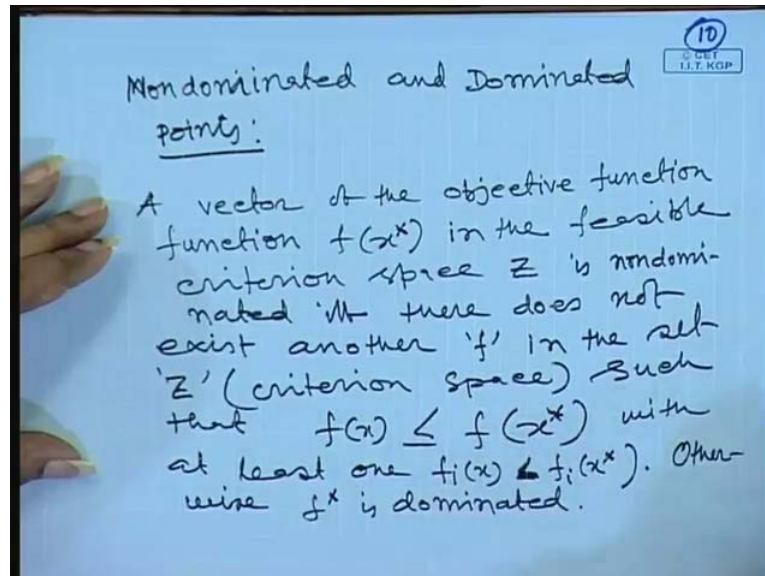 10
© CET
I.I.T. KGP
Nondominated and Dominated
points:
A vector of the objective function
function f(x*) in the feasible
criterion space Z is nondomi-
nated iff there does not
exist another 'f' in the set
'Z' (criterion space) such
that f(x) ≤ f(x*) with
at least one fi(x) < fi(x*). Other-
wise f* is dominated.